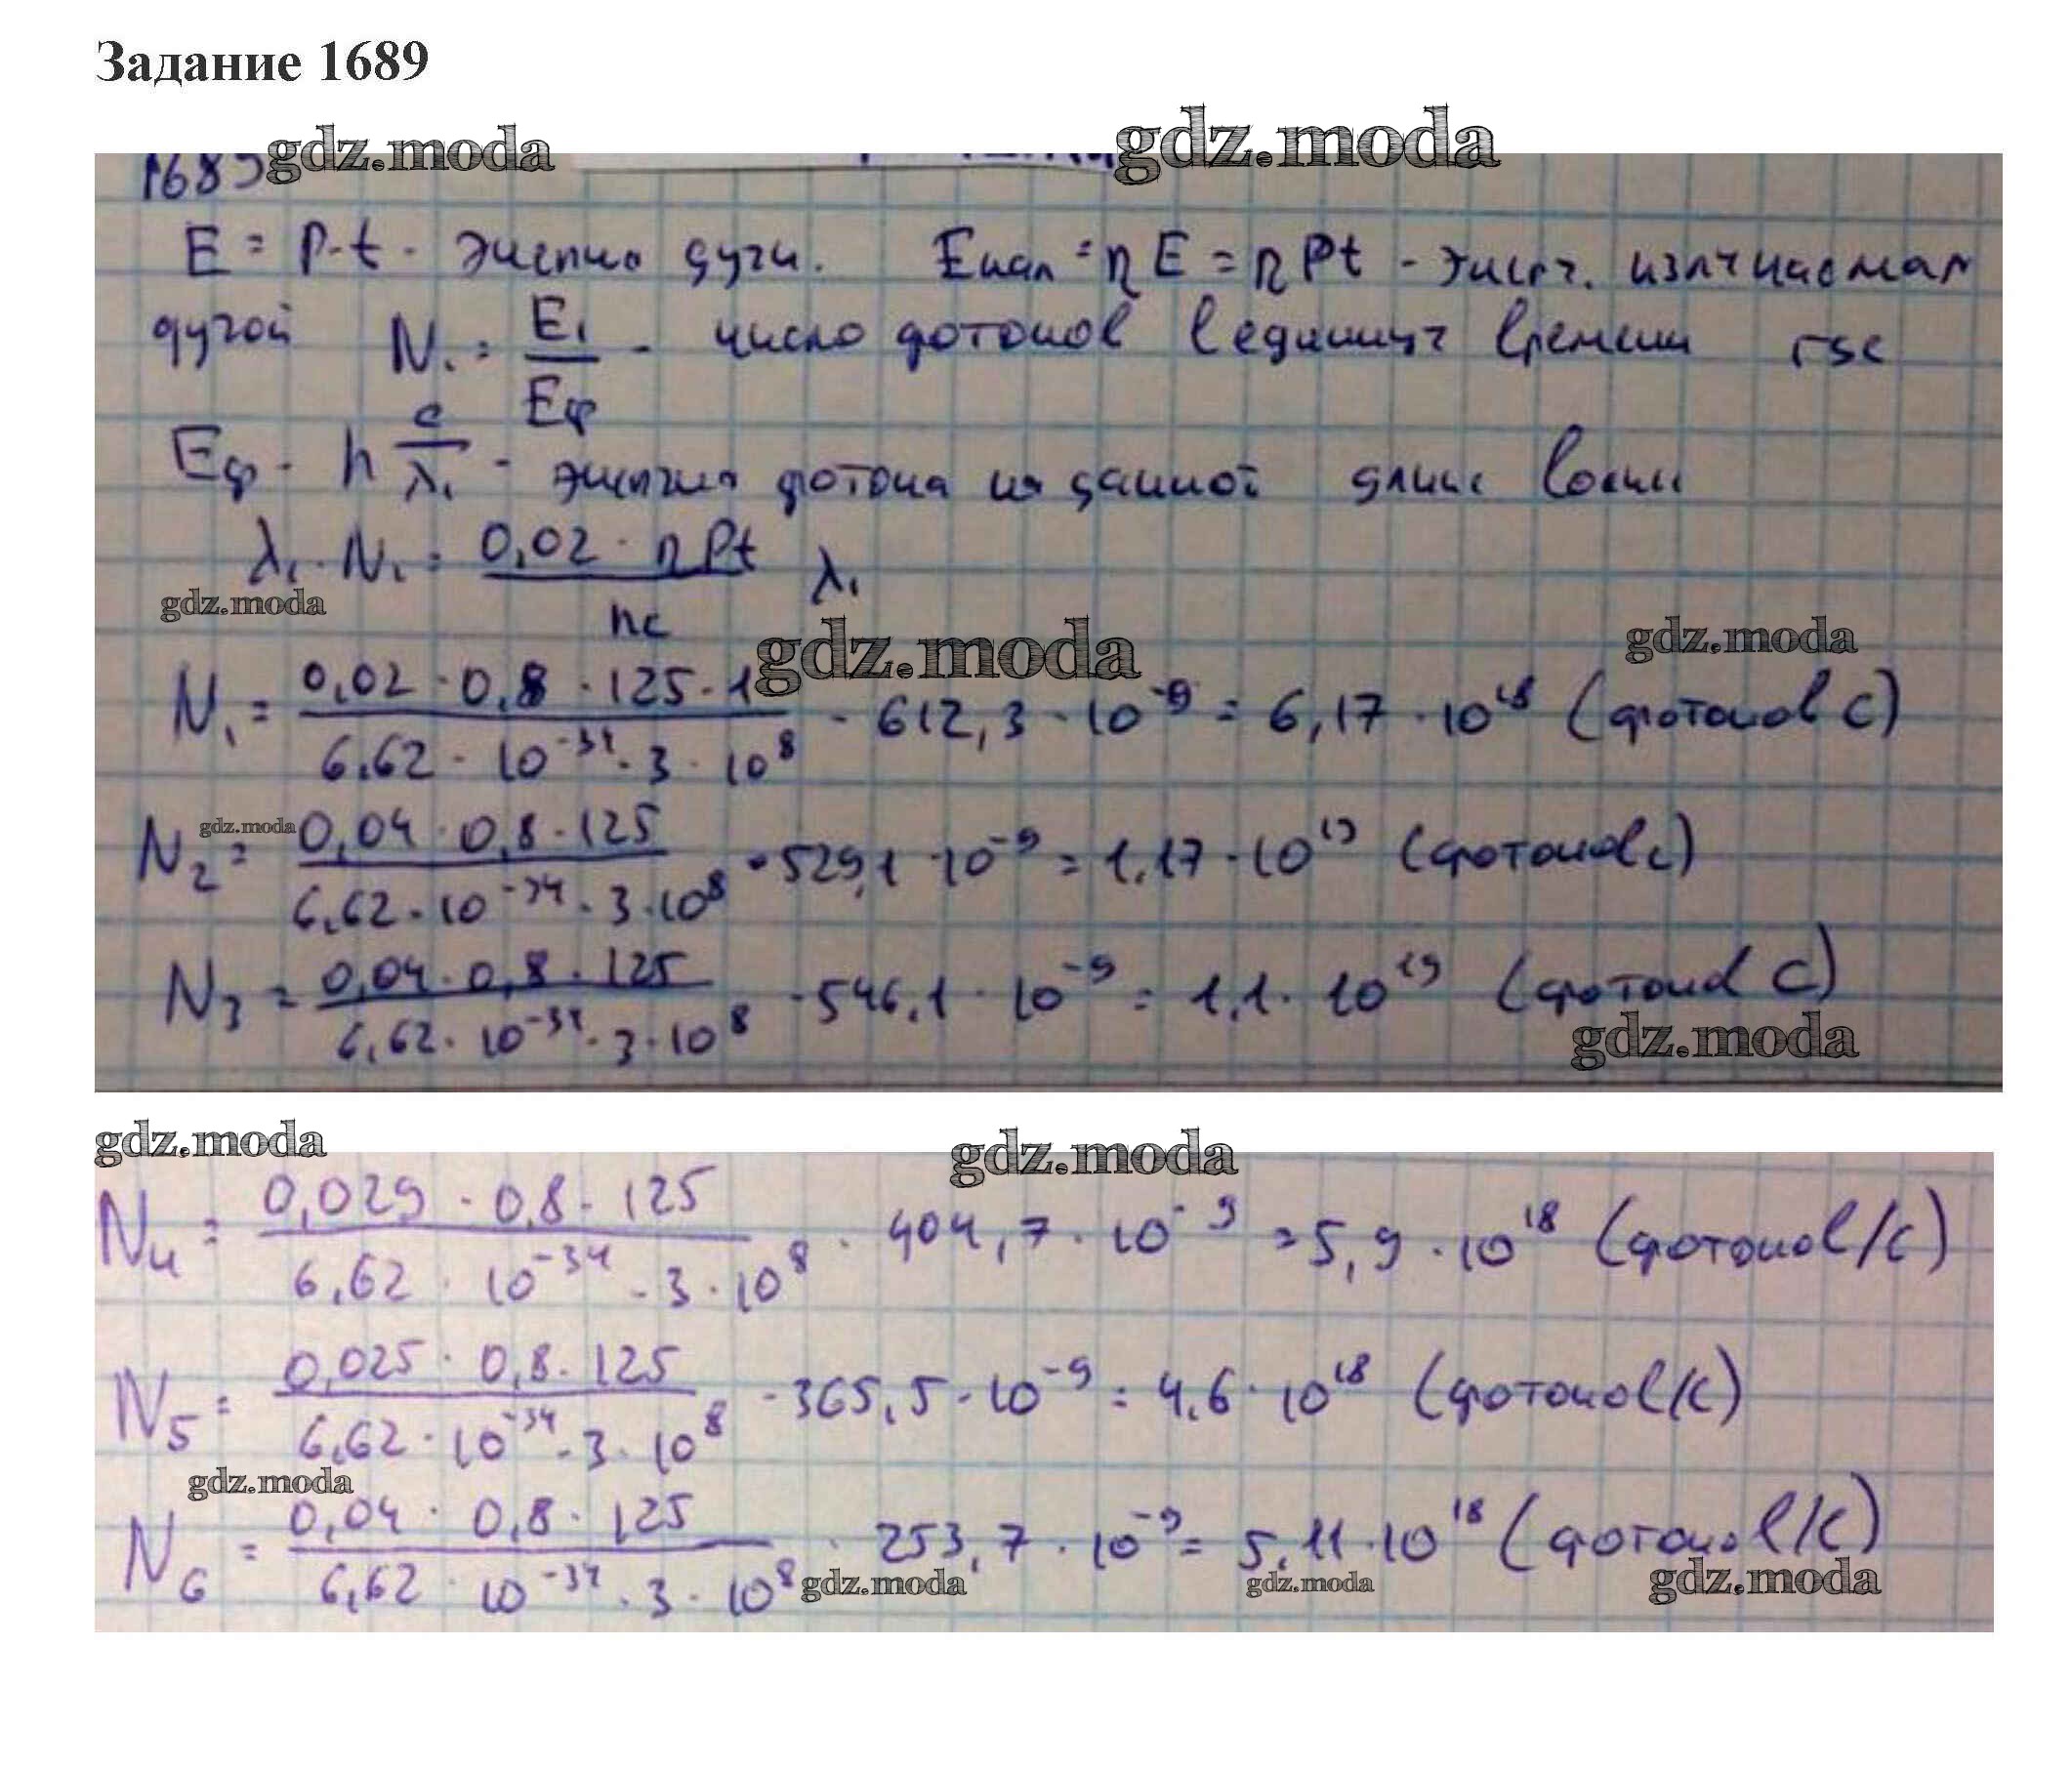 Задание 1689
gdz.moda gdz.moda
1689
E = P·t - энергия дуги. Eизл = ηE = ηPt - энерг. излучаемая
дугой N₁ = E₁/Eф - число фотонов в единицу времени где
Eф - h c/λ₁ - энергия фотона на данной длине волны
λ₁. N₁ = 0,02 · ηPt/hc λ₁
gdz.moda
gdz.moda gdz.moda
N₁ = 0,02 · 0,8 · 125 · 1/6.62 · 10⁻³⁴ · 3 · 10⁸ · 612,3 · 10⁻⁹ = 6,17 · 10¹⁸ (фотонов с)
gdz.moda
N₂ = 0,04 · 0,8 · 125/6.62 · 10⁻³⁴ · 3 · 10⁸ · 529,1 · 10⁻⁹ = 1.17 · 10¹⁹ (фотонов с)
N₃ = 0,04 · 0,8 · 125/6,62 · 10⁻³⁴ · 3 · 10⁸ · 546,1 · 10⁻⁹ = 1,1 · 10¹⁹ (фотонов с)
gdz.moda
gdz.moda gdz.moda
N₄ = 0,029 · 0,8 · 125/6,62 · 10⁻³⁴ · 3 · 10⁸ · 404,7 · 10⁻⁹ = 5,9 · 10¹⁸ (фотонов/с)
N₅ = 0,025 · 0,8 · 125/6,62 · 10⁻³⁴ · 3 · 10⁸ · 365,5 · 10⁻⁹ = 4,6 · 10¹⁸ (фотонов/с)
gdz.moda
N₆ = 0,04 · 0,8 · 125/6,62 · 10⁻³⁴ · 3 · 10⁸ · 253,7 · 10⁻⁹ = 5,11 · 10¹⁸ (фотонов/с)
gdz.moda gdz.moda gdz.moda